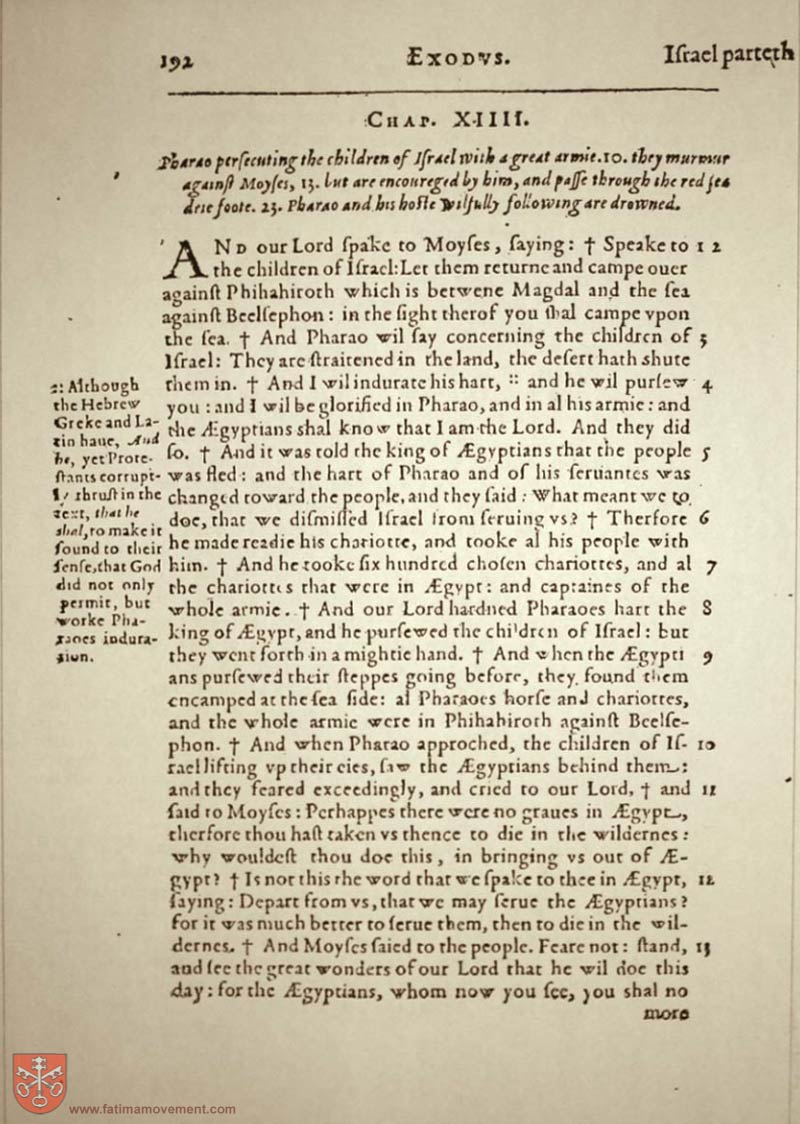 192 ÆXODVS. Iſrael parteth
CHAP. XIIII.
Pharao perſecuting the children of Iſrael with a great armie. 10. they murmur
againſt Moyſes, 13. but are encoureged by him, and paſſe through the red ſea
drie foote. 23. Pharao and his hoſte wilfully following are drowned.
AND our Lord ſpake to Moyſes, ſaying: † Speake to 1 2
the children of Iſrael: Let them returne and campe ouer
againſt Phihahiroth which is betwene Magdal and the ſea
againſt Beelſephon: in the ſight therof you ſhal campe vpon
the ſea. † And Pharao wil ſay concerning the children of 3
Iſrael: They are ſtraitened in the land, the deſert hath shute
them in. † And I wil indurate his hart, :: and he wil purſew 4
you: and I wil be glorified in Pharao, and in al his armie: and
the Ægyptians shal know that I am the Lord. And they did
ſo. † And it was told the king of Ægyptians that the people 5
was fled: and the hart of Pharao and of his ſeruantes was
changed toward the people, and they ſaid: What meant we to
doe, that we diſmiſſed Iſrael from ſeruing vs? † Therfore 6
he made readie his chariotte, and tooke al his people with
him. † And he tooke ſix hundred choſen chariottes, and al 7
the chariottes that were in Ægypt: and captaines of the
whole armie. † And our Lord hardned Pharaoes hart the 8
king of Ægypt, and he purſewed the children of Iſrael: but
they went forth in a mightie hand. † And when the Ægypti 9
ans purſewed their ſteppes going before, they found them
encamped at the ſea ſide: al Pharaoes horſe and chariottes,
and the whole armie were in Phihahiroth againſt Beelſe-
phon. † And when Pharao approched, the children of Iſ- 10
rael lifting vp their eies, ſaw the Ægyptians behind them:
and they feared exceedingly, and cried to our Lord, † and 11
ſaid to Moyſes: Perhappes there were no graues in Ægypt,
therfore thou haſt taken vs thence to die in the wildernes:
why wouldeſt thou doe this, in bringing vs out of Æ-
gypt? † Is not this the word that we ſpake to thee in Ægypt, 12
ſaying: Depart from vs, that we may ſerue the Ægyptians?
for it was much better to ſerue them, then to die in the wil-
dernes. † And Moyſes ſaied to the people. Feare not: ſtand, 13
and ſee the great wonders of our Lord that he wil doe this
day: for the Ægyptians, whom now you ſee, you shal no
more
:: Although
the Hebrew
Greke and La-
tin haue, And
he, yet Prote-
ſtants corrupt-
ly thruſt in the
text, that he
shal, to make it
ſound to their
ſenſe, that God
did not only
permit, but
worke Pha-
raoes indura-
tion.
www.fatimamovement.com